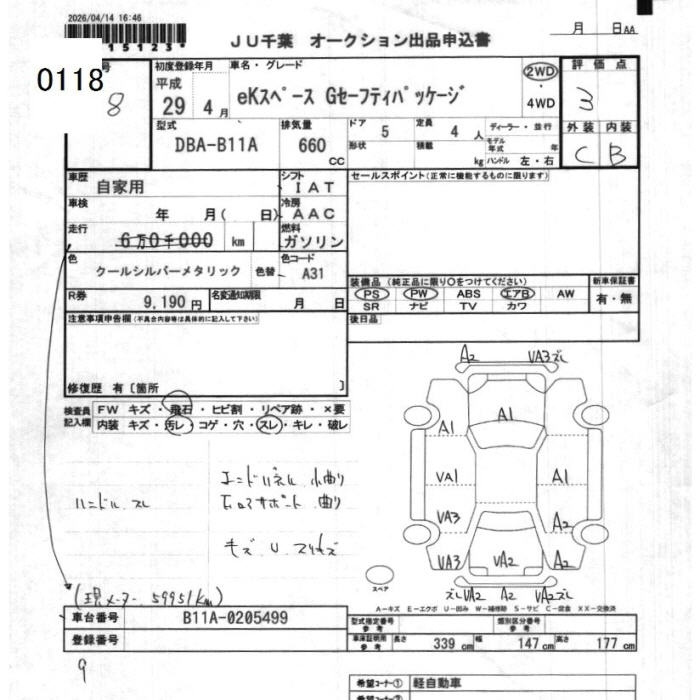 2026/04/14 16:46
15123
月 日AA
JU千葉 オークション出品申込書
0118
号
8
初度登録年月
平成
29 4 月
車名・グレード
eKスペース Gセーフティパッケージ
2WD
・
4WD
評価点
3
型式
DBA-B11A
排気量
660
CC
ドア 5
定員 4 人
ディーラー・並行
形状
積載 kg
モデル年式 年
ハンドル 左・右
外装 内装
C B
車歴
自家用
シフト
IAT
セールスポイント(正常に機能するものに限ります)
車検
年 月( 日)
冷房
AAC
走行
6万0千000 km
燃料
ガソリン
色
クールシルバーメタリック 色替
色コード
A31
装備品(純正品に限り○をつけてください)
新車保証書
PS PW ABS エアB AW
有・無
SR ナビ TV カワ
R券
9,190円
名変通知期限
月 日
注意事項申告欄(不具合内容等は具体的に記入して下さい)
後日品
修復歴 有〔箇所 〕
検査員
記入欄
FW キズ・飛石・ヒビ割・リペア跡・×要
内装 キズ・汚レ・コゲ・穴・スレ・キレ・破レ
エンドパネル 小曲り
ハンドル スレ
曲り
キズ U
A2 VA3ズレ
A1
A1
VA1 A1
VA3 A2
VA3 VA2 A2
ズレVA2 A2 VA2ズレ
スペア
A-キズ E-エクボ U-凹み W-補修跡 S-サビ C-腐食 XX-交換済
(現メーター 59951km)
車台番号 B11A-0205499
型式指定番号
参考
類別区分番号
参考
登録番号
車庫証明用
参考
長さ 339 cm 幅 147 cm 高さ 177 cm
9
希望コーナー① 軽自動車
希望コーナー②